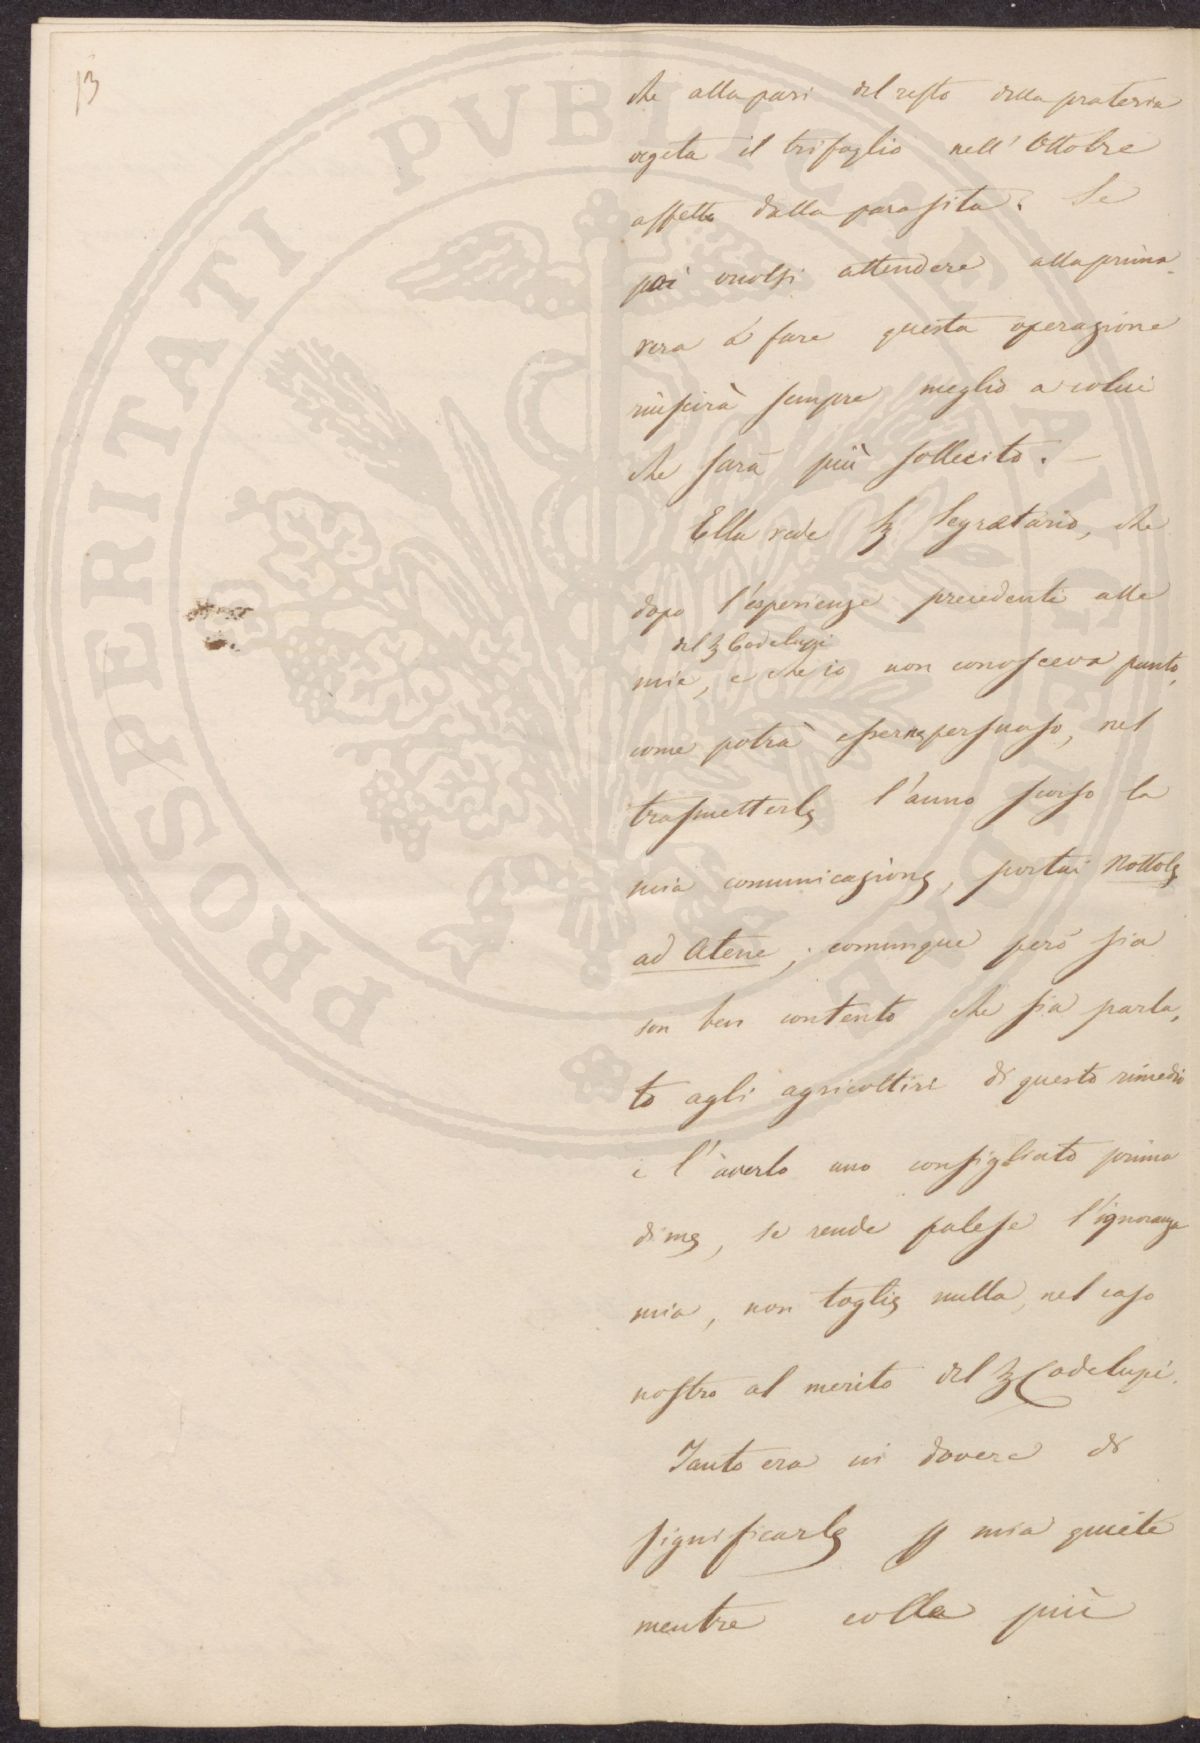 13
che alla pari del resto della prateria
vegeta il trifoglio nell'Ottobre
affetto dalla parasita. Se
poi vuolsi attendere alla prima-
vera a fare questa operazione
riuscirà sempre meglio a colui
che sarà più sollecito. -
Ella vede Sg Segretario, che
dopo l'esperienze precedenti alle
del Sg Cadelupi
mie, e che io non conosceva punto,
come potrà esserne persuaso, nel
trasmetterle l'anno scorso la
mia comunicazione, portai Nottole
ad Atene; comunque però sia
son ben contento che sia parla-
to agli agricoltori di questo rimedio
e l'averlo uno consigliato prima
di me, se rende palese l'ignoranza
mia, non toglie nulla, nel caso
nostro al merito del Sg Cadelupi.
Tanto era in dovere di
significarle p mia quiete
mentre colla più
PROSPERITATI PVBLICAE AVGENDAE